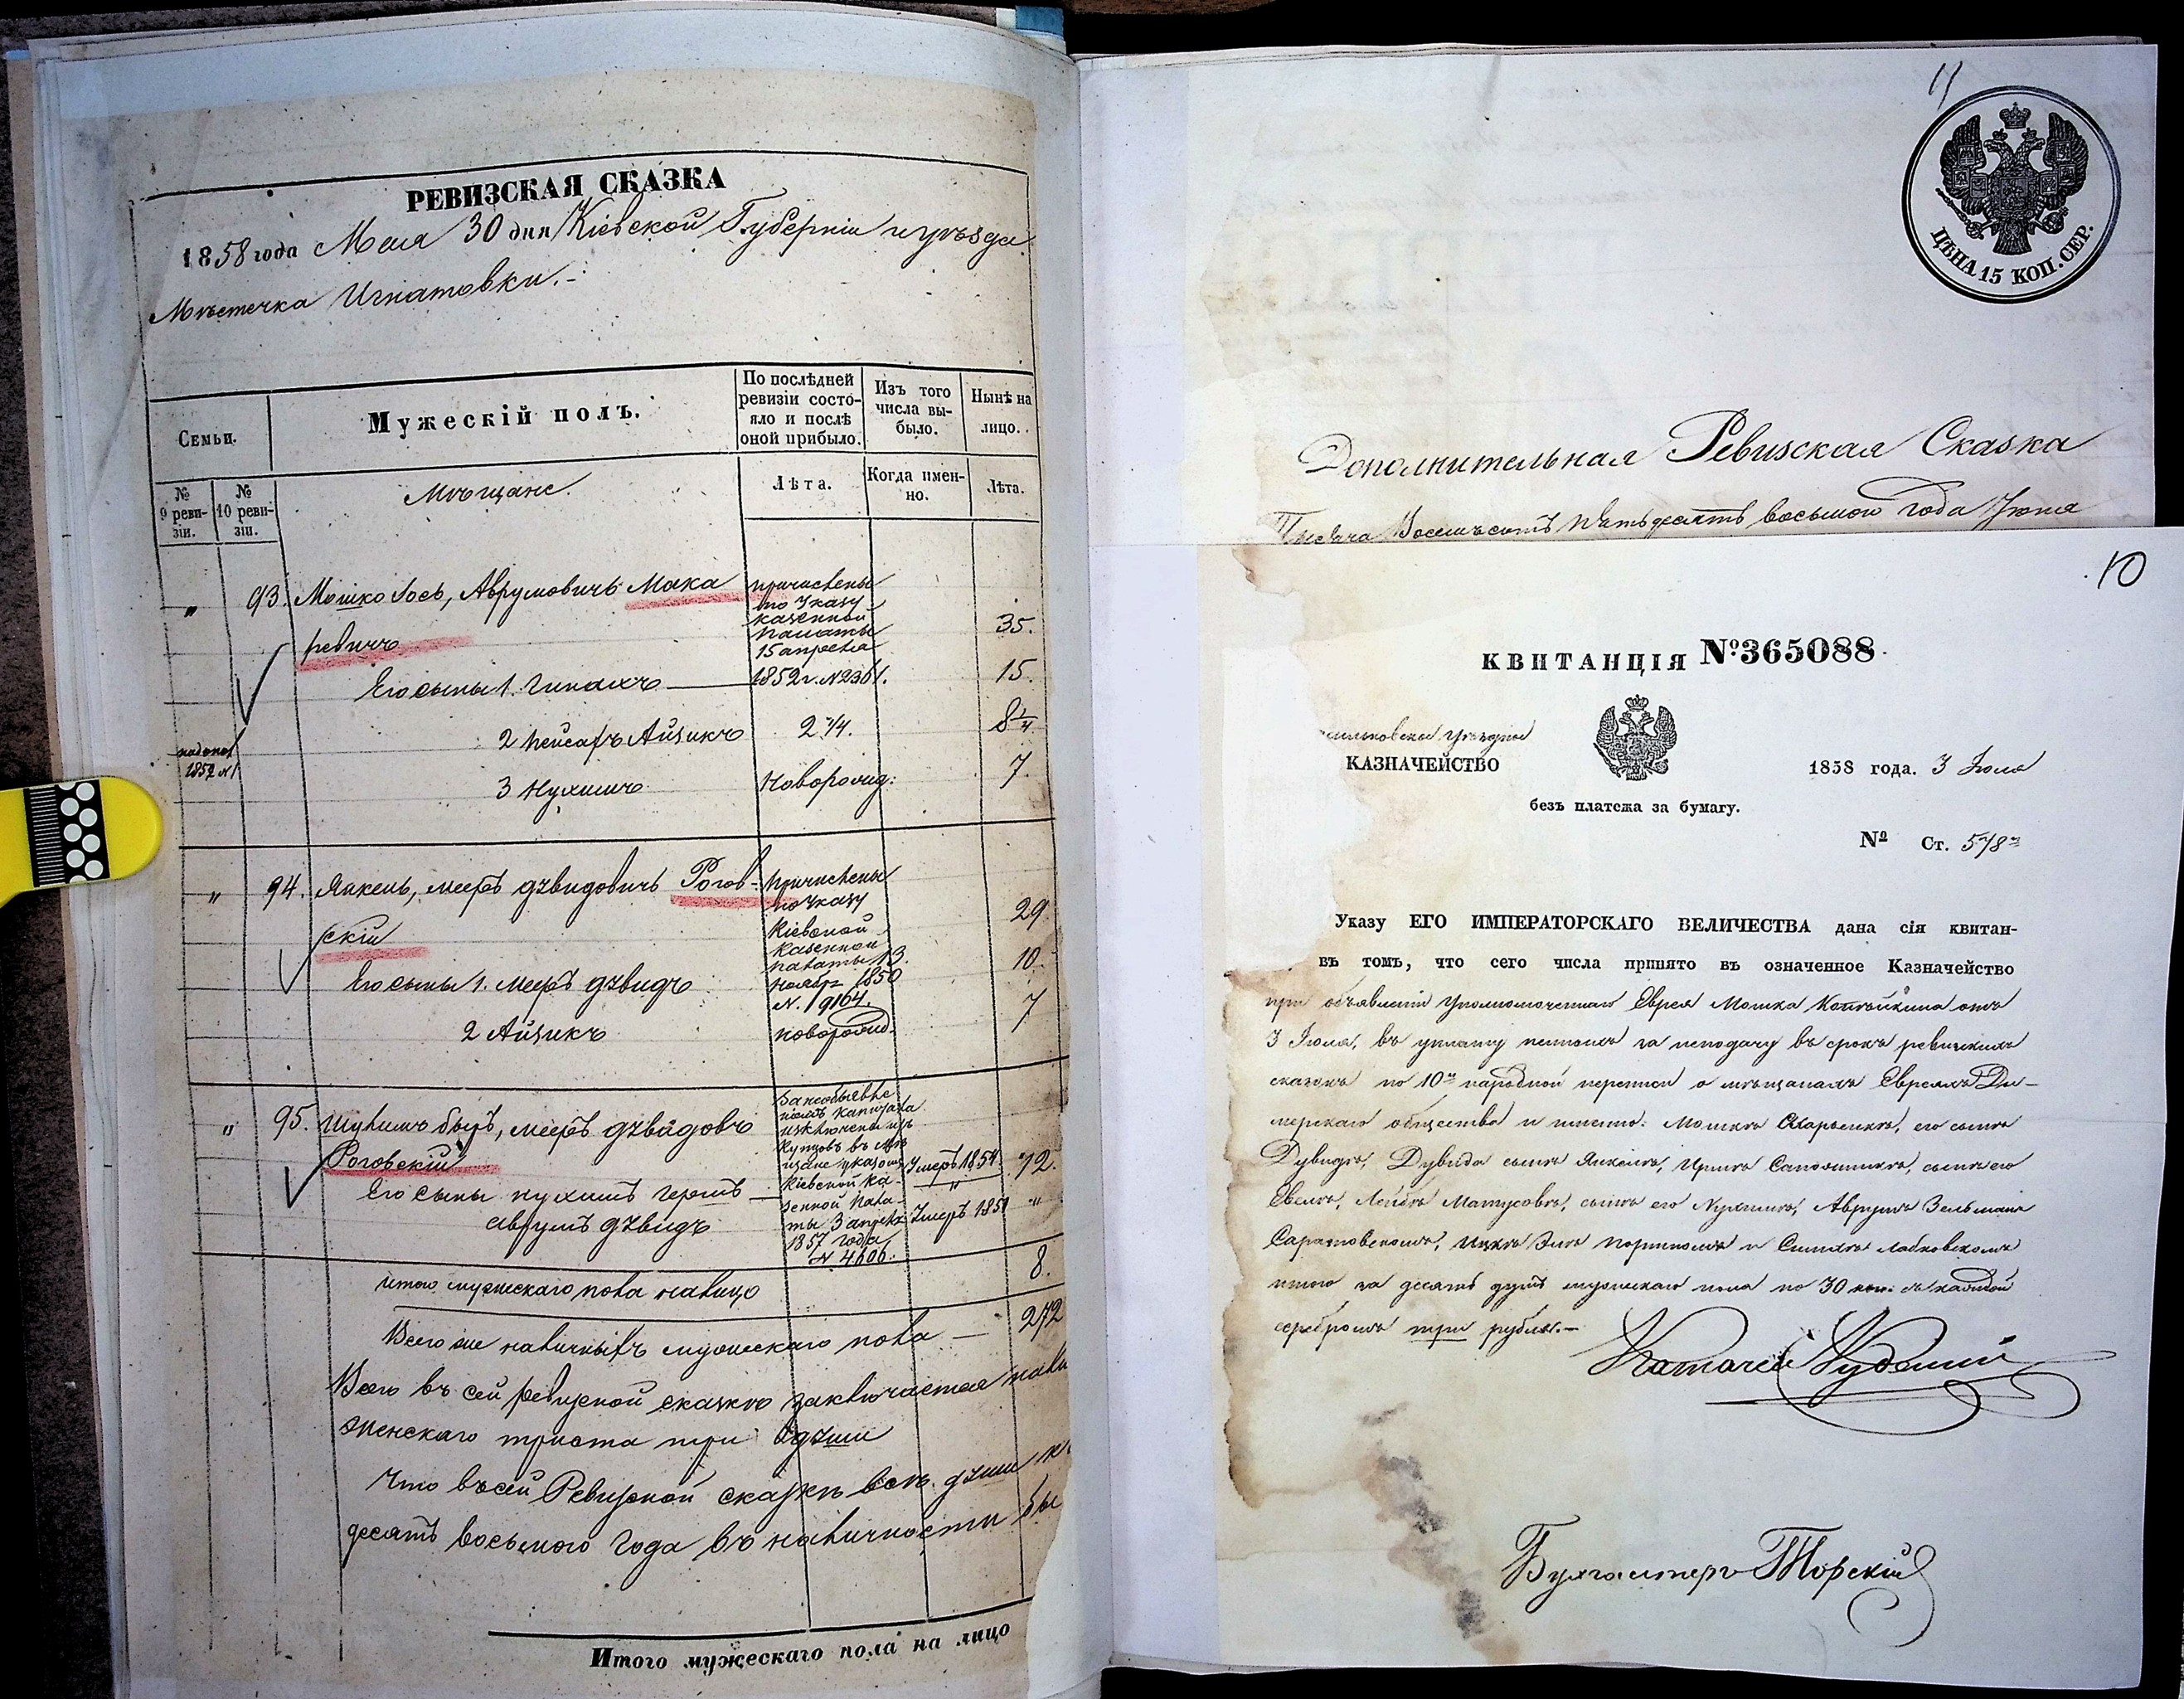 РЕВИЗСКАЯ СКАЗКА
1858 года Мая 30 дня Кіевской Губерніи и уѣзда
Мѣстечка Игнатовки.
Семьи.
Мужескій полъ.
По послѣдней ревизіи состояло и послѣ оной прибыло.
Изъ того числа выбыло.
Нынѣ на лицо.
№ 9 ревизіи.
№ 10 ревизіи.
Мѣщане.
Лѣта.
Когда именно.
Лѣта.
" 93. Мошко Іось, Аврумовичъ Мака
ревичъ
причислены
по указу
казенной
палаты
15 апреля
1852 г. № 2361.
35.
Его сыны 1. 15.
2 Пейсахъ Айзикъ 2 3/4. 8 1/4
3 Нухимъ Новорожд: 7.
1852 № 1
" 94. Янкель, Мееръ Дувидовичъ Рогов-
скій
причислены
по указу
Кіевской
Казенной
палаты 13.
Ноябр 1850
N. 19164.
29.
Его сыны 1. Мееръ Дувидъ 10.
2 Айзикъ новорожд. 7
" 95. Шулимъ Беръ, Мееръ Дувидовъ
Роговскій
капитала
исключены изъ
купцовъ въ мѣ
щане указомъ
Кіевской Ка-
зенной Пала-
ты 3 апреля
1857 года
N 4606.
72.
Его сыны Нухимъ Гершъ Умеръ 1854. "
Аврумъ Дувидъ Умеръ 1851 "
Итого мужескаго пола налицо 8.
Всего же наличныхъ мужескаго пола — 272
Всего въ сей ревизской сказкѣ заключается нали
женскаго триста три души
Что въ сей Ревизской сказкѣ всѣ души
десятъ восьмого года въ наличности бы
Итого мужескаго пола на лицо
11
ЦѢНА 15 КОП. СЕР.
Дополнительная Ревизская Сказка
Тысяча Восемьсотъ Пятьдесятъ восьмого года Іюля
10
КВИТАНЦІЯ № 365088.
КАЗНАЧЕЙСТВО
1858 года. 3 Іюля
безъ платежа за бумагу.
№ Ст. 578
Указу ЕГО ИМПЕРАТОРСКАГО ВЕЛИЧЕСТВА дана сія квитан-
въ томъ, что сего числа принято въ означенное Казначейство
при объявленіи Уполномоченнаго Еврея Мошка Копѣйкина отъ
3 Іюля, въ уплату пенныхъ за неподачу въ срокъ ревизскихъ
сказокъ по 10й народной переписи о мѣщанахъ Евреяхъ Ды-
мерскаго общества и именно: Мошкѣ его сынѣ
Дувидѣ, Дувида сынѣ Янкелѣ, Иршѣ Сапожникѣ, сынѣ его
Евелѣ, Лейбѣ Матусовѣ, сынѣ его Нухимѣ, Аврумѣ Зельманѣ
Саратовскомъ, Ицкѣ и
итого за десять душъ мужескаго пола по 30 коп. съ каждой
серебромъ три рубля.—
Казначей
Бухгалтеръ Торскій